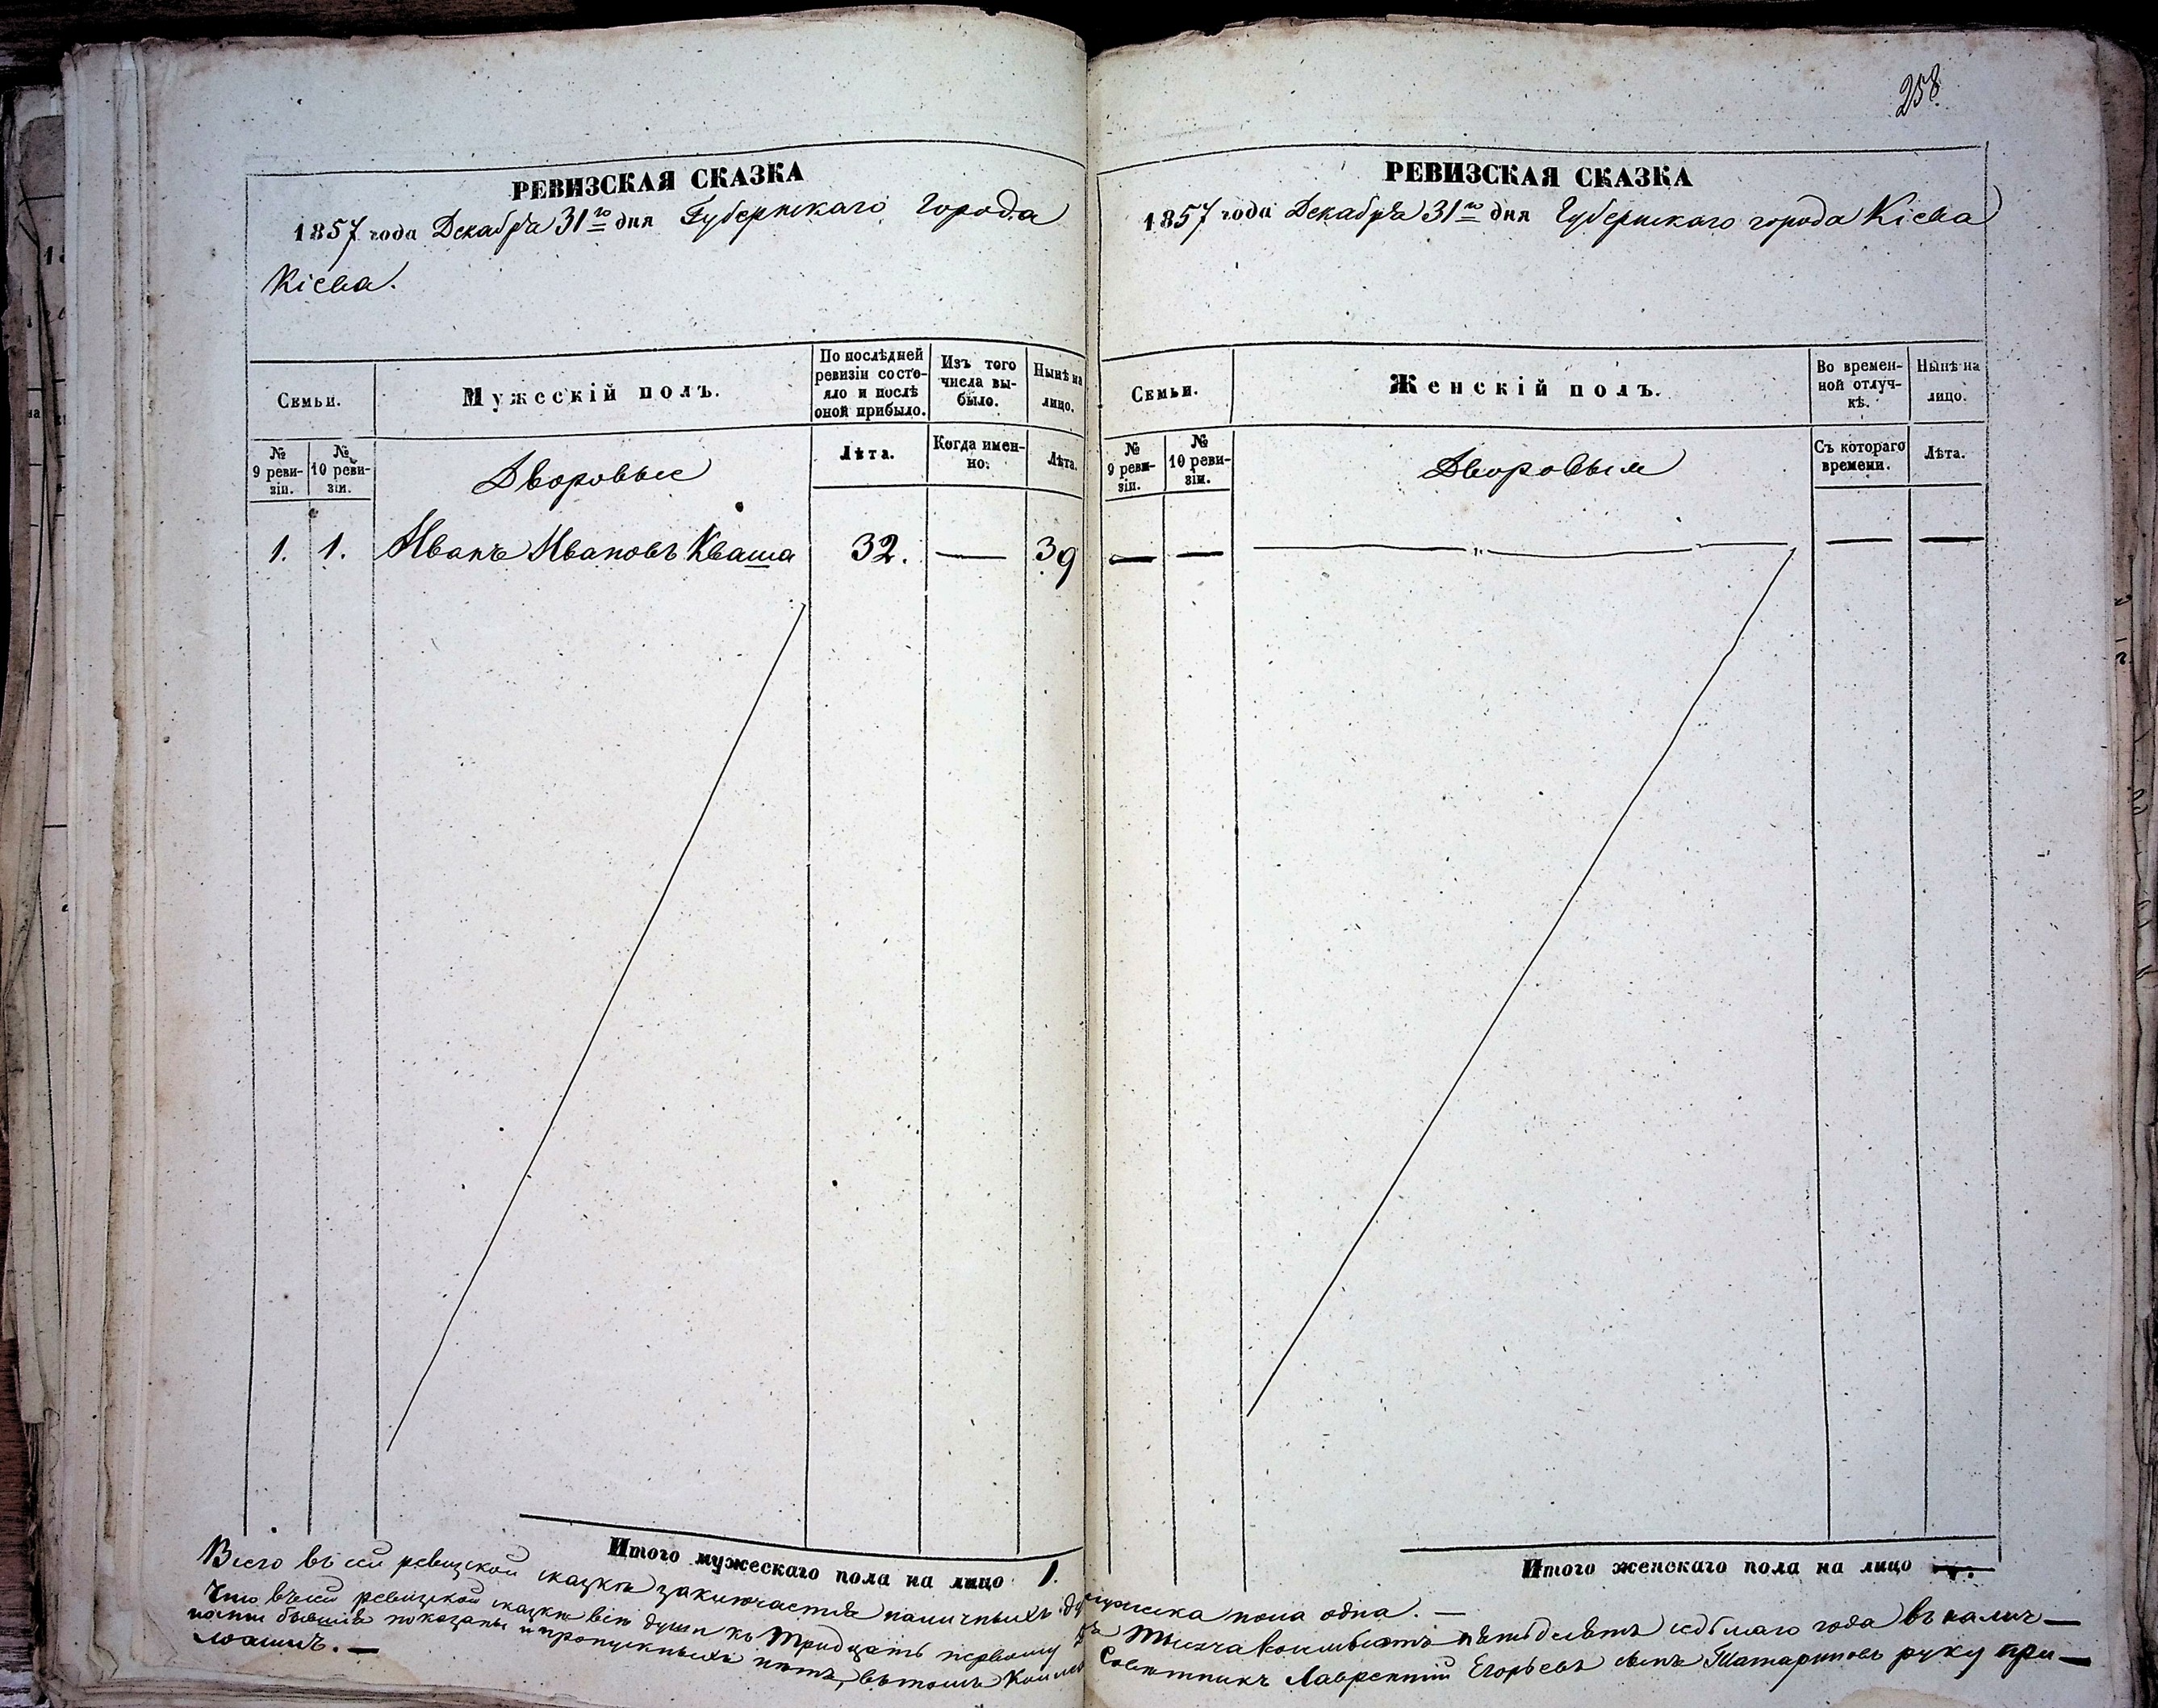 258
РЕВИЗСКАЯ СКАЗКА
1857 года Декабря 31го дня Губернскаго Города
Кіева.
Семьи.
Мужескій полъ.
По послѣдней
ревизіи состо-
яло и послѣ
оной прибыло.
Изъ того
числа вы-
было.
Нынѣ на
лицо.
№
9 реви-
зіи.
№
10 реви-
зіи.
Дворовые
Лѣта.
Когда имен-
но.
Лѣта.
1. 1. Иванъ Ивановъ Кваша 32. — 39
Итого мужескаго пола на лицо 1.
РЕВИЗСКАЯ СКАЗКА
1857 года Декабря 31го дня Губернскаго города Кіева
Семьи.
Женскій полъ.
Во времен-
ной отлуч-
кѣ.
Нынѣ на
лицо.
№
9 реви-
зіи.
№
10 реви-
зіи.
Дворовыя
Съ котораго
времени.
Лѣта.
— — — — —
Итого женскаго пола на лицо —
Всего въ сей ревизской сказкѣ заключается наличныхъ мужеска пола одна. —
Что въ сей ревизской сказкѣ всѣ души къ тридцать первому тысяча восемьсотъ пятьдесятъ седьмаго года въ налич—
ности бывшія показаны и пропускныхъ нѣтъ, въ томъ Совѣтникъ Лаврентій Егорьевъ сынъ Татариновъ руку при—
ложилъ. —